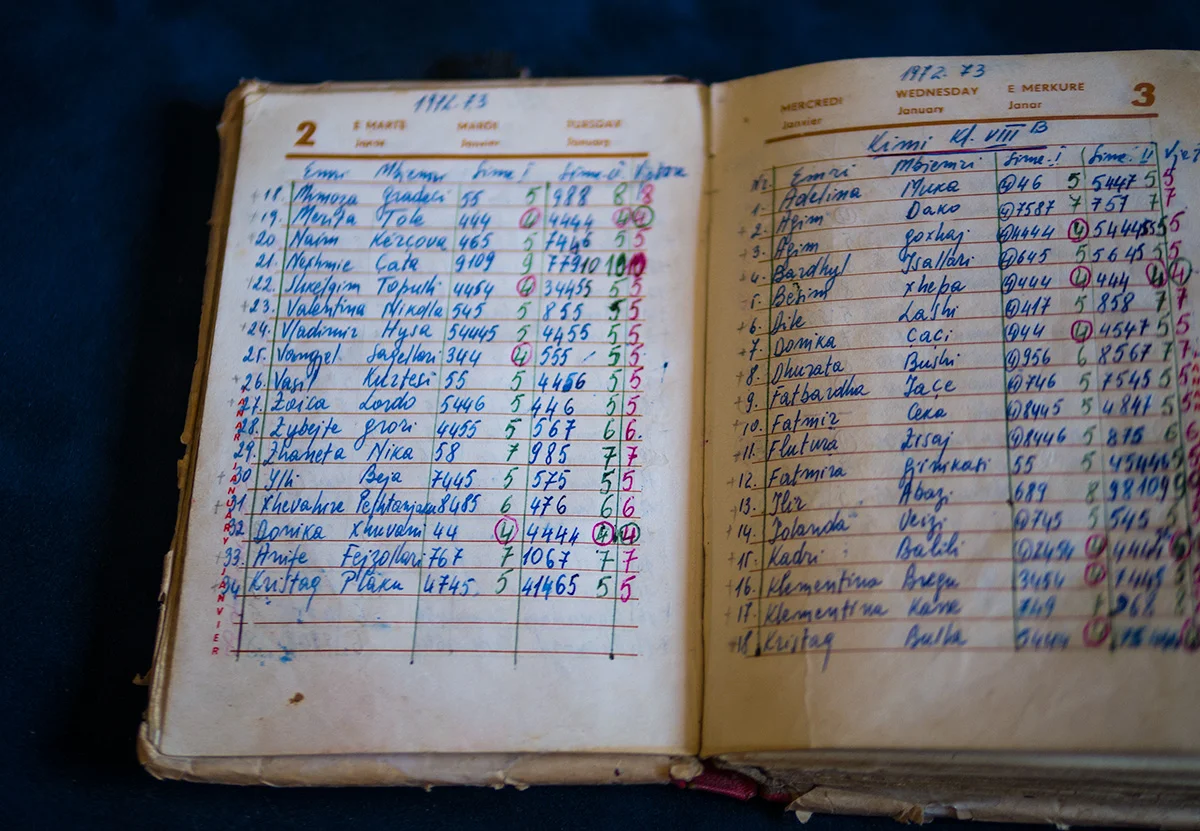 1972-73
2 E MARTE MARDI TUESDAY
Janar Janvier January
Emri Mbiemri Sime. I Sime. II Vjetore
+18. Mimoza Gradeci 55 5 988 8 8
+19. Merita Tole 444 4 4444 4 4
20 Naim Kerçova 465 5 7446 5 5
21. Nexhmie Çata 9109 9 77910 10 10
+22. Shkelqim Topulli 4454 4 34455 5 5
+23. Valentina Nikolla 545 5 855 5 5
+24. Vladimir Hysa 54445 5 4455 5 5
25. Vangjel Sagellari 344 4 555 5 5
+26. Vasil Kurtesi 55 5 4456 5 5
27. Zoica Lordo 5446 5 446 5 5
28. Zybejte Grori 4455 5 567 6 6.
29. Zhaneta Nika 58 7 985 7 7
+30 Ylli Beja 7445 5 575 5 5
+31 Xhevahire 8485 6 476 6 6
32 Donika Xhuvani 44 4 4444 4 4
+33. Anife Fejzollari 767 7 1067 7 7
34 Kristaq Plaku 4745 5 41465 5 5
JANAR JANUARY JANVIER
1972. 73
MERCREDI WEDNESDAY E MERKURE 3
Janvier January Janar
Kimi Kl. VIII B
Nr. Emri Mbiemri Sime. I Sime. II Vjet
1. Adelina Muka 46 5 5447 5 5
+2. Agim Dako 7587 7 757 7 7
+3. Agim Goxhaj 4444 4 5
+4. Bardhyl Isallari 645 5 5645 5 5
+5. Besim Xhepa 444 4 444 4 4
+6. Dile Lashi 417 5 858 7 7
+7. Donika Caci 44 4 4547 5 5
+8. Dhurata Bushi 956 6 8567 7 7
9. Fatbardha Jaçe 746 5 7545 5 5
+10. Fatmir Ceka 8445 5 4847 5
+11. Flutura Zisaj 8446 5 875 6
+12. Fatmira 55 5
+13. Ilir Abazi 689 8 98109 9
+14. Jolanda Veizi 745 5 545 5
+15. Kadri Balili 4
+16. Klementina Bregu 3454 4
+17. Klementina Kane 749
+18 Kristaq 4